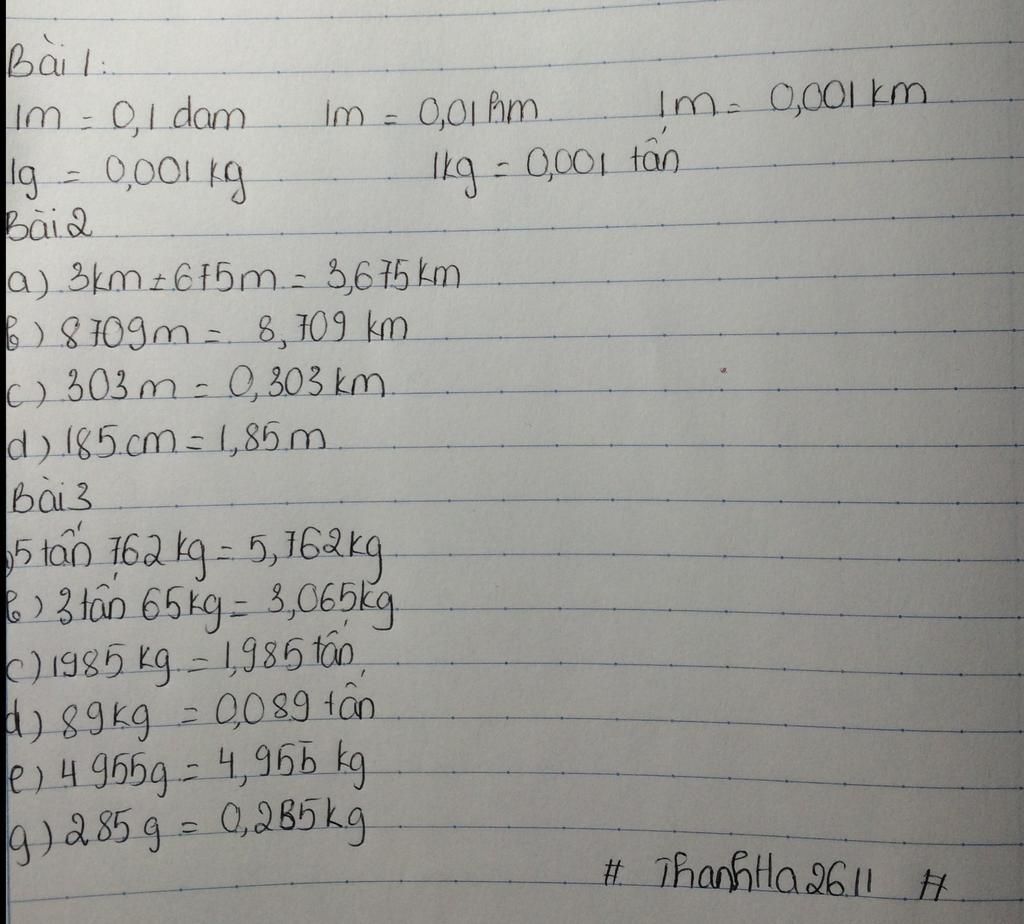 Bài 1:
1m = 0,1 dam 1m = 0,01 hm 1m = 0,001 km
1g = 0,001 kg 1kg = 0,001 tấn
Bài 2
a) 3km ± 675m = 3,675km
b) 8709m = 8,709 km
c) 303m = 0,303km
d) 185cm = 1,85m
Bài 3
)5 tấn 762kg = 5,762kg
b) 3 tấn 65kg = 3,065kg
c) 1985kg = 1,985 tấn
d) 89kg = 0,089 tấn
e) 4955g = 4,955 kg
g) 285g = 0,285kg
# ThanhHa2611 #